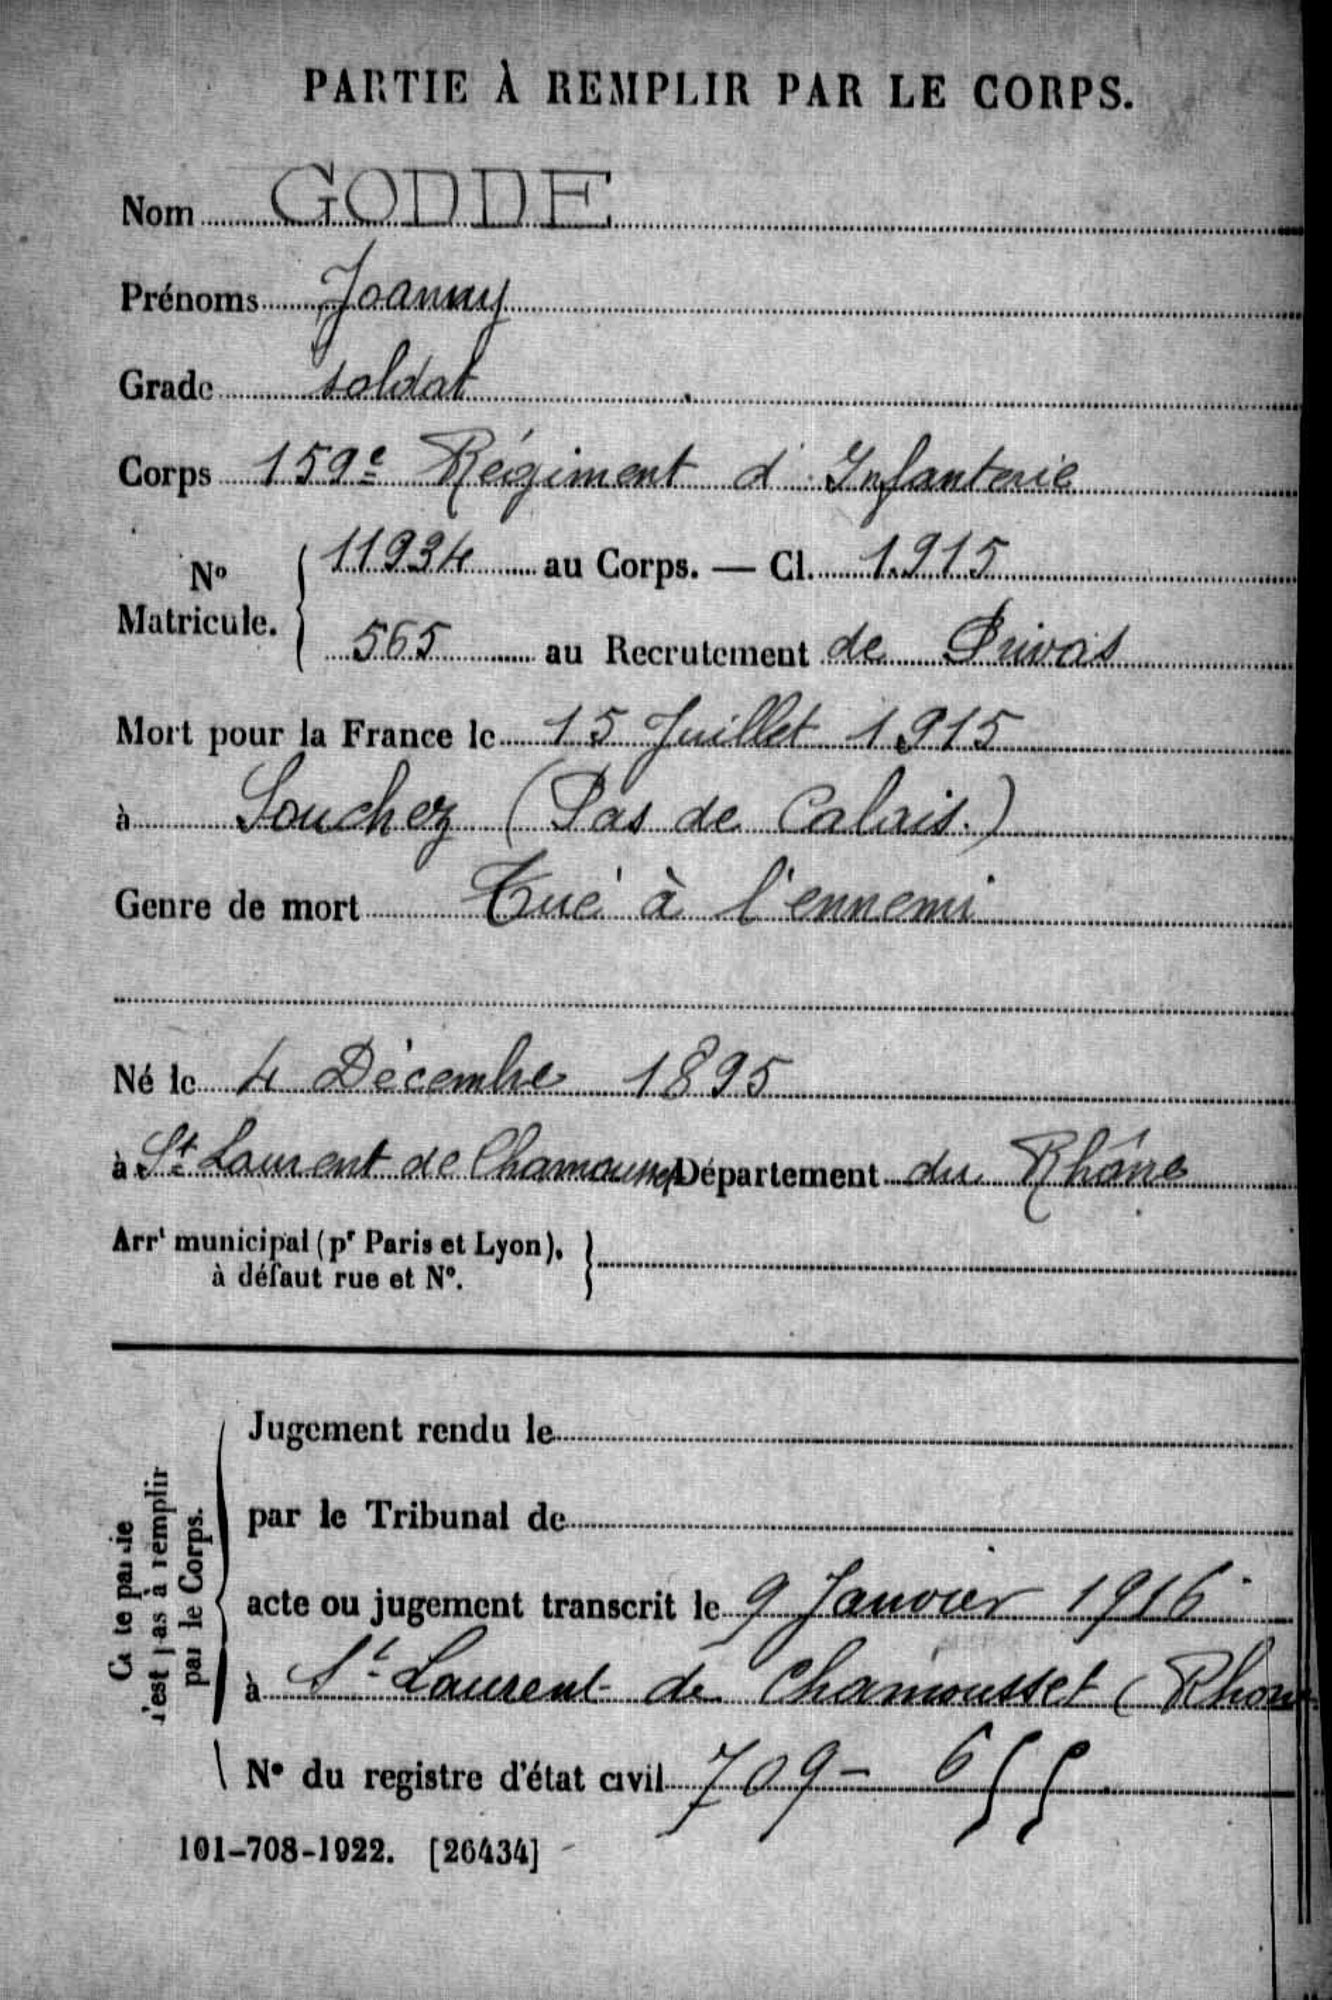 PARTIE À REMPLIR PAR LE CORPS.
Nom GODDE
Prénoms Joanny
Grade soldat
Corps 159e Régiment d'Infanterie
No Matricule. { 11934 au Corps. — Cl. 1915
565 au Recrutement de Privas
Mort pour la France le 15 Juillet 1915
à Souchez (Pas de Calais.)
Genre de mort Tué à l'ennemi
Né le 4 Décembre 1895
à St Laurent de Chamousset Département du Rhône
Arrt municipal (pr Paris et Lyon), }
à défaut rue et No.
Jugement rendu le
par le Tribunal de
acte ou jugement transcrit le 9 Janvier 1916
à St Laurent de Chamousset (Rhon
No du registre d'état civil 709 - 655
Cette partie
n'est pas à remplir
par le Corps.
101-708-1922. [26434]